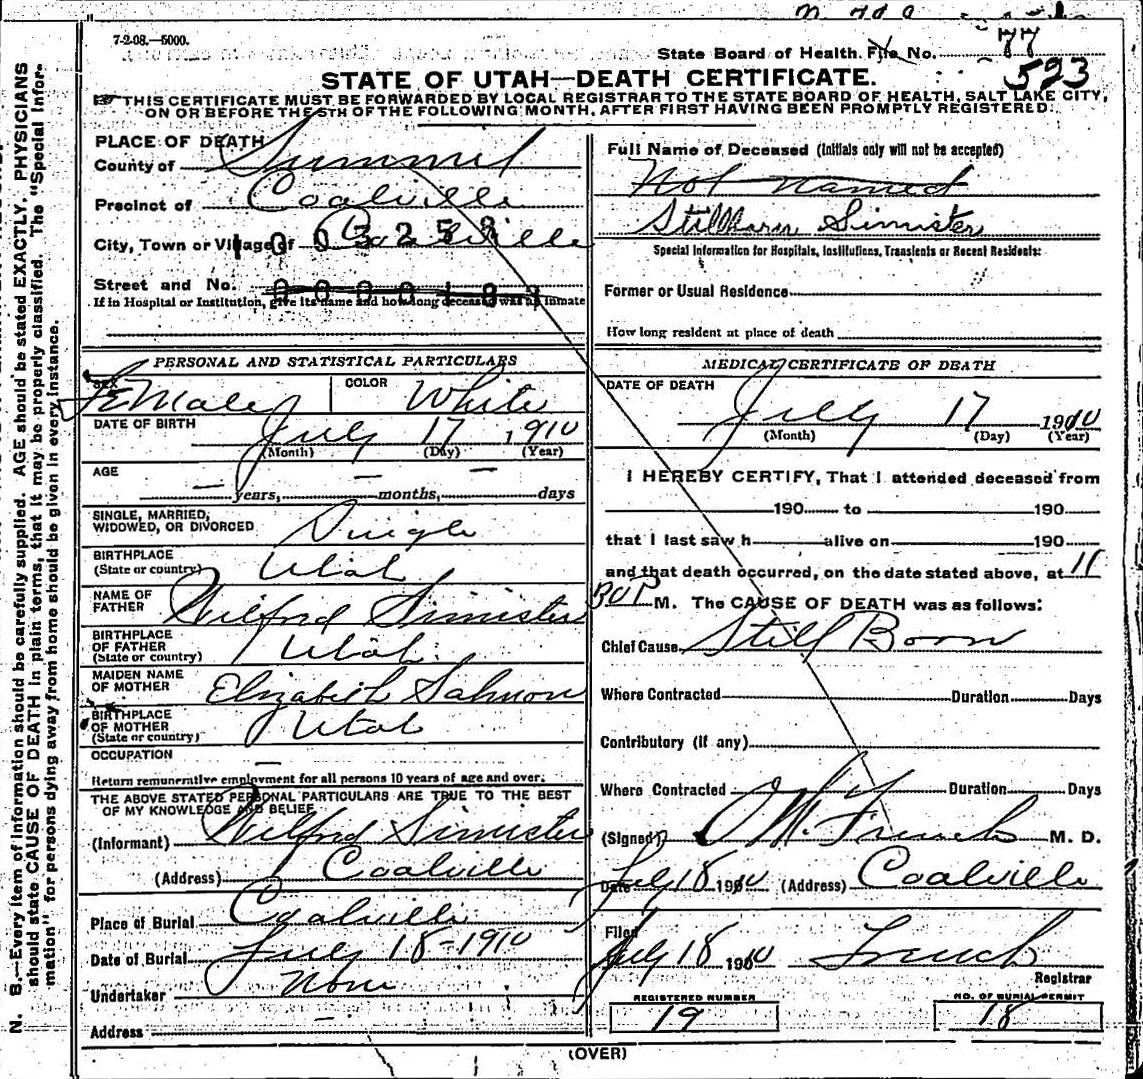 7-2-08.—5000.
State Board of Health. File No. 77
593
STATE OF UTAH—DEATH CERTIFICATE.
THIS CERTIFICATE MUST BE FORWARDED BY LOCAL REGISTRAR TO THE STATE BOARD OF HEALTH, SALT LAKE CITY,
ON OR BEFORE THE 5TH OF THE FOLLOWING MONTH, AFTER FIRST HAVING BEEN PROMPTLY REGISTERED.
PLACE OF DEATH
County of Summit
Precinct of Coalville
City, Town or Village of Coalville
Street and No.
If in Hospital or Institution, give its name and how long deceased was an inmate
Full Name of Deceased (Initials only will not be accepted)
Not named
Stillborn Simister
Special Information for Hospitals, Institutions, Transients or Recent Residents:
Former or Usual Residence
How long resident at place of death
PERSONAL AND STATISTICAL PARTICULARS
SEX FeMale COLOR White
DATE OF BIRTH July 17, 1910
(Month) (Day) (Year)
AGE — years, — months, — days
SINGLE, MARRIED,
WIDOWED, OR DIVORCED Single
BIRTHPLACE
(State or country) Utah
NAME OF
FATHER Wilford Simister
BIRTHPLACE
OF FATHER
(State or country) Utah
MAIDEN NAME
OF MOTHER Elizabeth Salmon
BIRTHPLACE
OF MOTHER
(State or country) Utah
OCCUPATION —
Return remunerative employment for all persons 10 years of age and over.
THE ABOVE STATED PERSONAL PARTICULARS ARE TRUE TO THE BEST
OF MY KNOWLEDGE AND BELIEF
(Informant) Wilford Simister
(Address) Coalville
Place of Burial Coalville
Date of Burial July 18-1910
Undertaker None
Address —
MEDICAL CERTIFICATE OF DEATH
DATE OF DEATH
July 17 1910
(Month) (Day) (Year)
I HEREBY CERTIFY, That I attended deceased from
190 to 190
that I last saw h alive on 190
and that death occurred, on the date stated above, at 11
P M. The CAUSE OF DEATH was as follows:
Chief Cause Still Born
Where Contracted Duration Days
Contributory (if any)
Where Contracted Duration Days
(Signed) M. French M. D.
Date July 18 1910 (Address) Coalville
Filed
July 18 1910 French
Registrar
REGISTERED NUMBER
19
NO. OF BURIAL PERMIT
18
(OVER)
N. B.—Every item of information should be carefully supplied. AGE should be stated EXACTLY. PHYSICIANS
should state CAUSE OF DEATH in plain terms, that it may be properly classified. The "Special Infor-
mation" for persons dying away from home should be given in every instance.